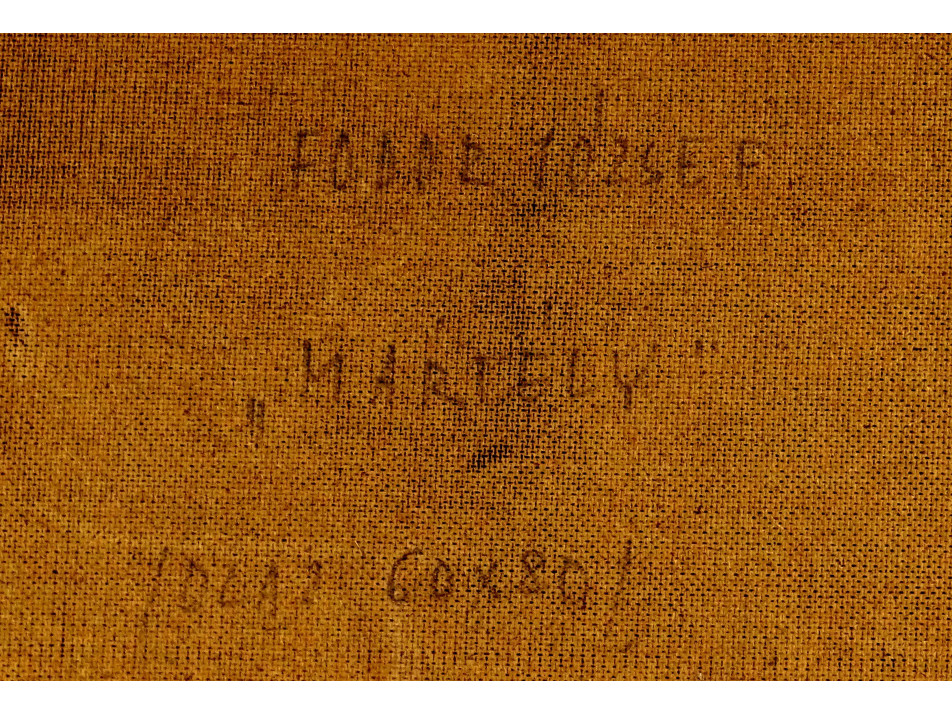 FODOR JÓZSEF
„MÁRTÉLY"
/OLAJ 60X80/